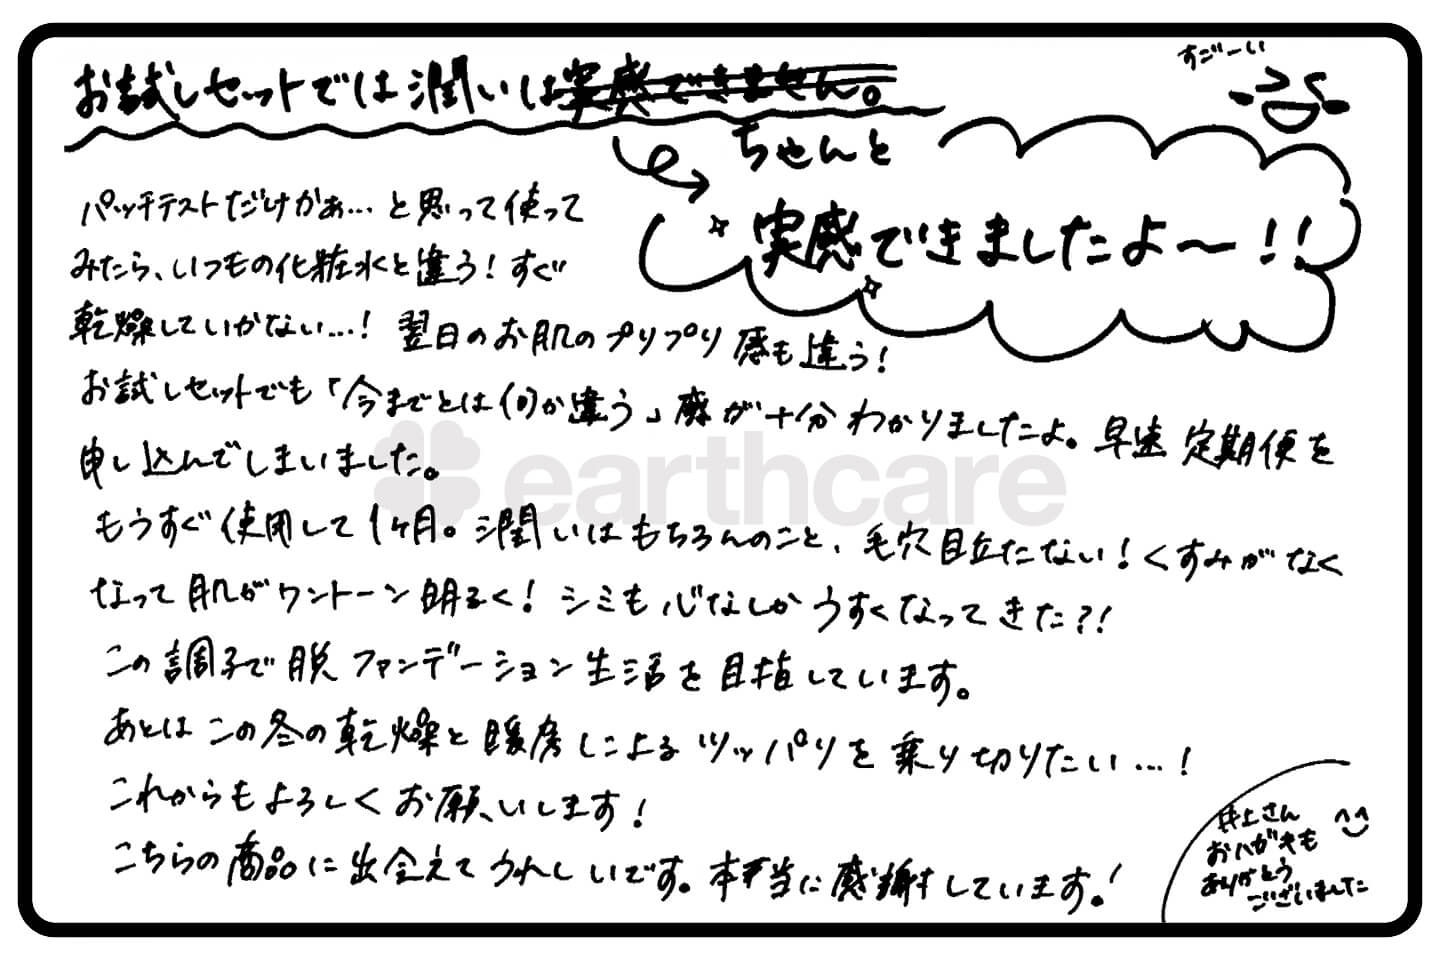 お試しセットでは潤いは実感できません。
すごーい
ちゃんと
実感できましたよ〜!!
パッチテストだけかぁ…と思って使って
みたら、いつもの化粧水と違う!すぐ
乾燥していかない…!翌日のお肌のプリプリ感も違う!
お試しセットでも「今までとは何か違う」感が十分わかりましたよ。早速定期便を
申し込んでしまいました。
earthcare
もうすぐ使用して1ヶ月。潤いはもちろんのこと、毛穴目立たない!くすみがなく
なって肌がワントーン明るく!シミも心なしかうすくなってきた?!
この調子で脱ファンデーション生活を目指しています。
あとはこの冬の乾燥と暖房によるツッパリを乗り切りたい…!
これからもよろしくお願いします!
こちらの商品に出会えてうれしいです。本当に感謝しています!
井上さん
おハガキも
ありがとう
ございました